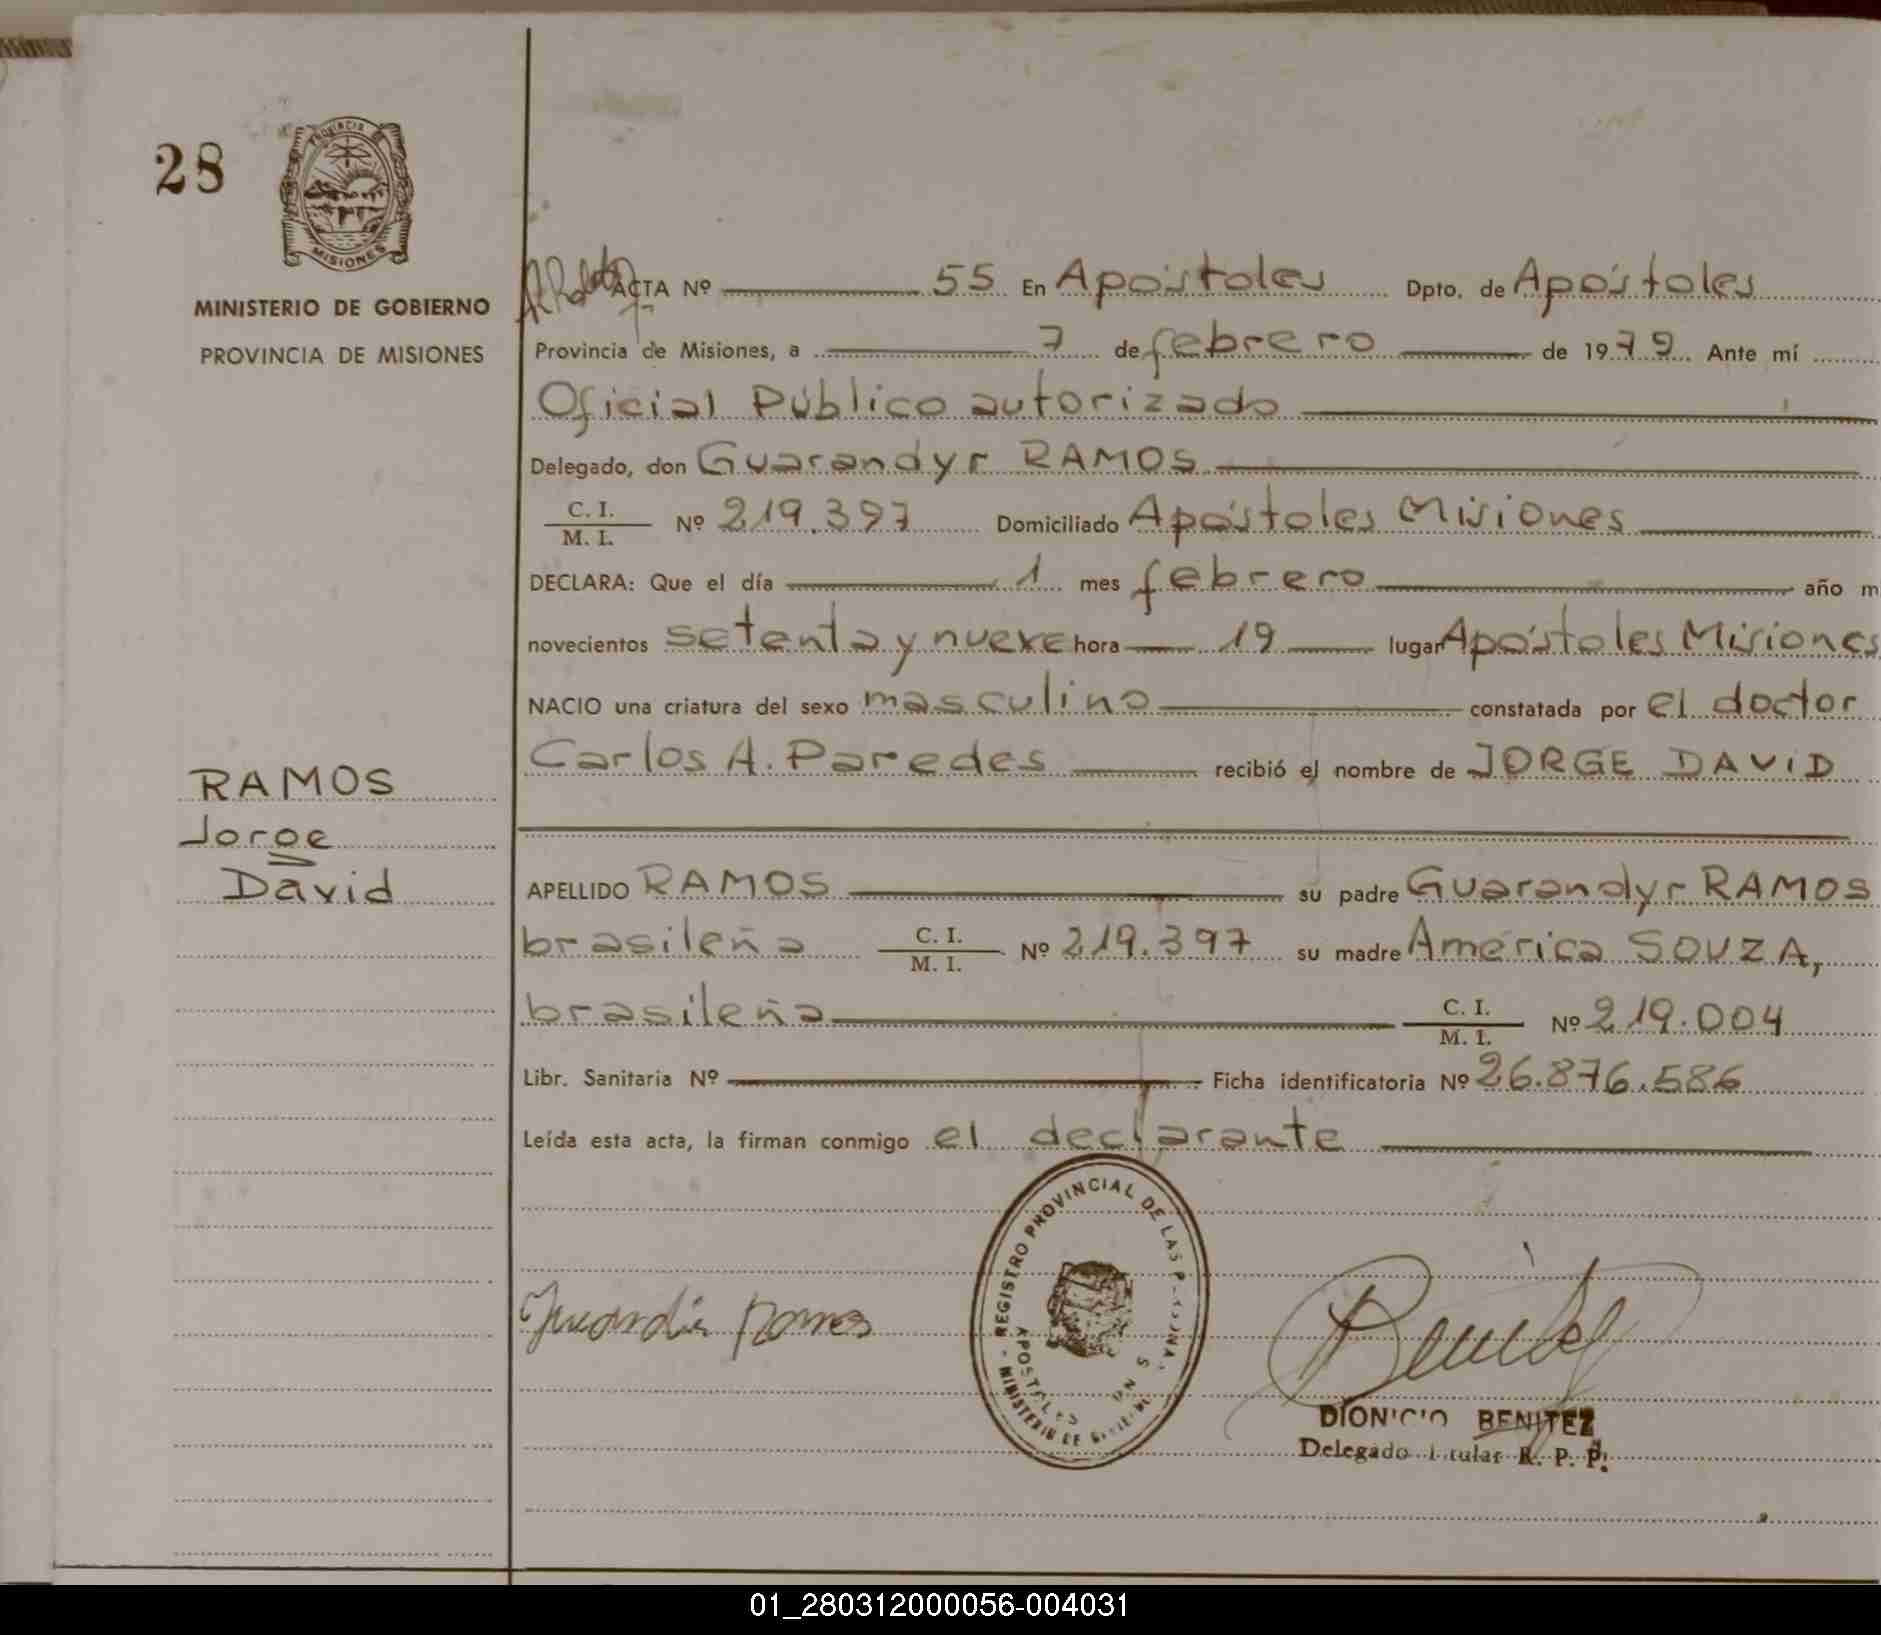 28
PROVINCIA DE
MISIONES
MINISTERIO DE GOBIERNO
PROVINCIA DE MISIONES
RAMOS
Jorge
David
ACTA Nº 55 En Apóstoles Dpto. de Apóstoles
Provincia de Misiones, a 7 de febrero de 1979 Ante mí
Oficial Público autorizado
Delegado, don Guarandyr RAMOS
C. I.
M. I. Nº 219.397 Domiciliado Apóstoles Misiones
DECLARA: Que el día 1 mes febrero año m
novecientos setenta y nueve hora 19 lugar Apóstoles Misiones
NACIO una criatura del sexo masculino constatada por el doctor
Carlos A. Paredes recibió el nombre de JORGE DAVID
APELLIDO RAMOS su padre Guarandyr RAMOS
brasileña C. I.
M. I. Nº 219.397 su madre América SOUZA,
brasileña C. I.
M. I. Nº 219.004
Libr. Sanitaria Nº Ficha identificatoria Nº 26.876.586
Leída esta acta, la firman conmigo el declarante
REGISTRO PROVINCIAL DE LAS
APOSTOLES
MINISTERIO DE
Ramos
DIONICIO BENITEZ
Delegado Titular R. P. P.
01_280312000056-004031